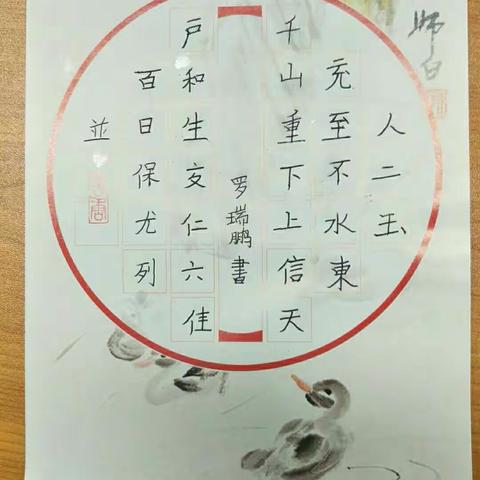 师白
人二玉
充至不水東
千山重下上信天
罗瑞鹏書
户和生文仁六佳
百日保尤列
並